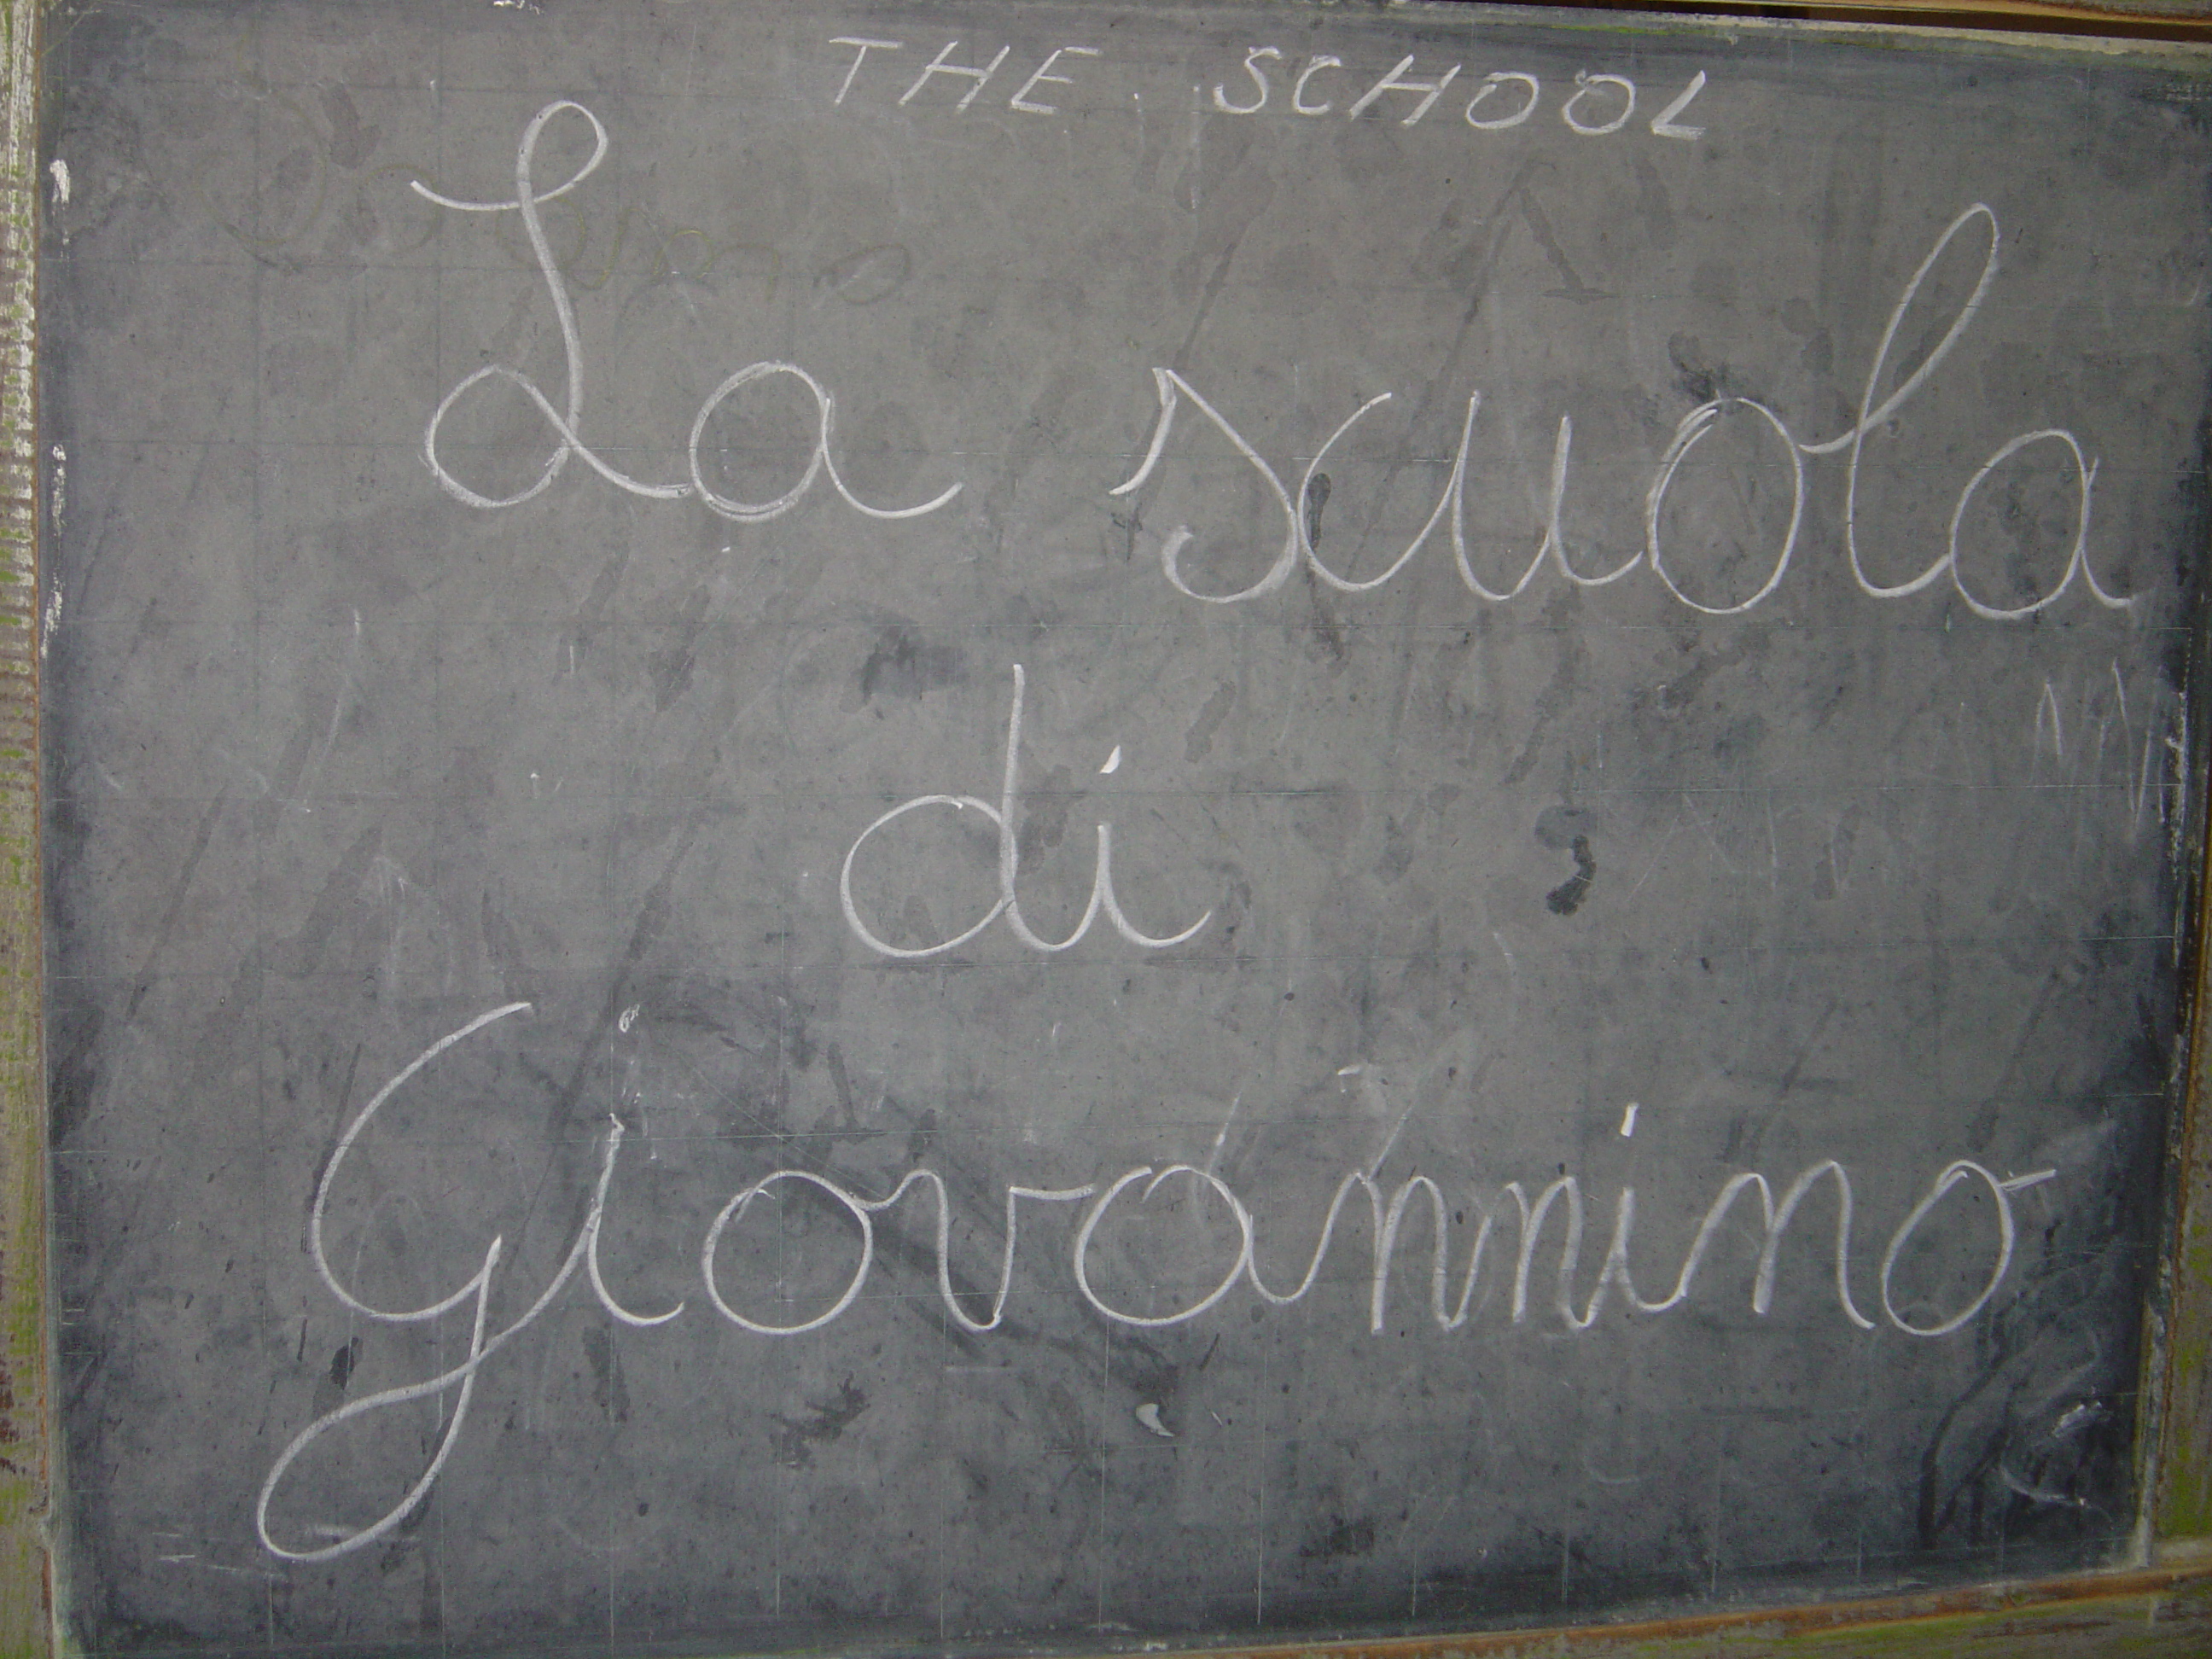 THE SCHOOL
La scuola
di
Giovannino